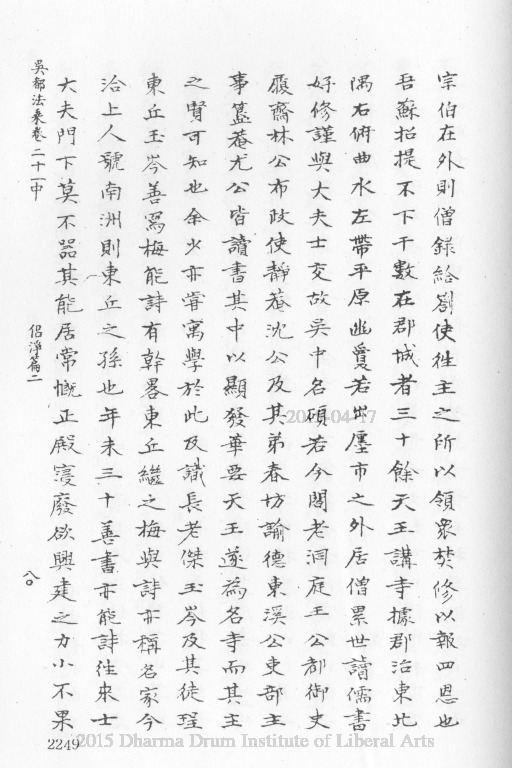 宗伯在外則僧錄給劄使徃主之所以領衆焚修以報四恩也
吾蘇招提不下千數在郡城者三十餘天王講寺據郡治東北
隅右俯曲水左帶平原幽敻若出廛市之外居僧累世讀儒書
好修謹與大夫士交故吳中名碩若今閣老洞庭王公都御史
履齋林公布政使靜菴沈公及其弟春坊諭德東溪公吏部主
事簋菴尤公皆讀書其中以顯發華要天王遂為名寺而其主
之賢可知也余少亦甞寓學於此及識長老傑玉岑及其徒瑆
東丘玉岑善寫梅能詩有幹畧東丘繼之梅與詩亦稱名家今
洽上人號南洲則東丘之孫也年未三十善書亦能詩徃來士
大夫門下莫不器其能居常慨正殿寖廢欲興建之力小不果
吳都法乘卷二十一中
侶淨篇二
八〇
2249
2015 Dharma Drum Institute of Liberal Arts